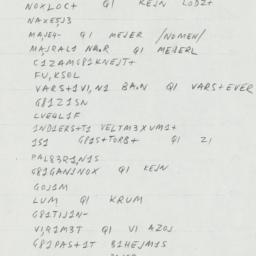 NOXLOC+ QI KEJN LODZ+
NAXE5J3
MA,JE4- QI MEJER /NOMEN/
MAJRAL1 NA.R QI MEJERL
C1ZAMG81KNEJT+
FU,KSOL
VARS+1VI,N1 BA.N QI VARS+EVER
G81Z1SN
LVEUL1F
1ND1ERS+T1 VELTM3XUM1+
1S1 G81S+TORB+ QI ZI
PAL83R1,N1S
G81GANJNOX QI KEJN
GOJ1M
LUM QI KRUM
G81TIJ1N-
V,Q1M3T QI VI AZOJ
G81PAS+1T B1HEJM1S